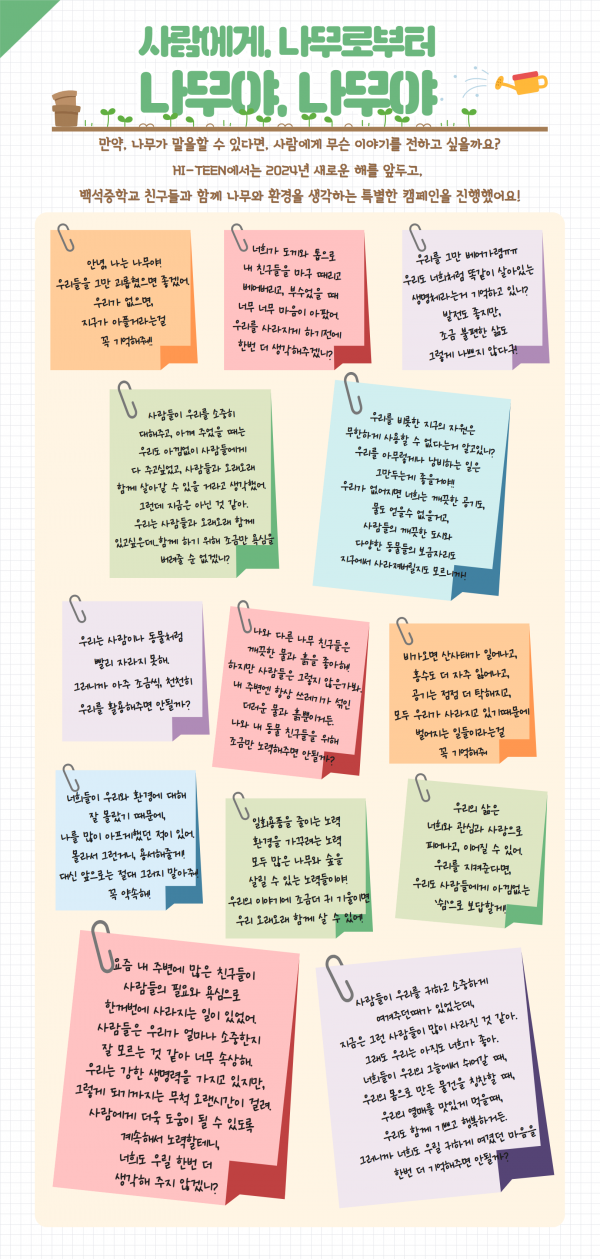 사람에게, 나무로부터
나무야, 나무야
만약, 나무가 말을할 수 있다면, 사람에게 무슨 이야기를 전하고 싶을까요?
HI-TEEN에서는 2024년 새로운 해를 앞두고,
백석중학교 친구들과 함께 나무와 환경을 생각하는 특별한 캠페인을 진행했어요!
안녕, 나는 나무야!
우리들을 그만 괴롭혔으면 좋겠어.
우리가 없으면,
지구가 아플거라는걸
꼭 기억해줘!
너희가 도끼와 톱으로
내 친구들을 마구 때리고
베어버리고, 부수었을 때
너무 너무 마음이 아팠어.
우리를 사라지게 하기전에
한번 더 생각해주겠니?
우리를 그만 베어가렴ㅠㅠ
우리도 너희처럼 똑같이 살아있는
생명체라는거 기억하고 있니?
발전도 좋지만,
조금 불편한 삶도
그렇게 나쁘지 않다구!
사람들이 우리를 소중히
대해주고, 아껴 주었을 때는
우리도 아낌없이 사람들에게
다 주고싶었고, 사람들과 오래오래
함께 살아갈 수 있을 거라고 생각했어.
그런데 지금은 아닌 것 같아.
우리는 사람들과 오래오래 함께
있고싶은데..함께 하기 위해 조금만 욕심을
버려줄 순 없겠니?
우리를 비롯한 지구의 자원은
무한하게 사용할 수 없다는거 알고있니?
우리를 아무렇게나 낭비하는 일은
그만두는게 좋을거야!
우리가 없어지면 너희는 깨끗한 공기도,
물도 얻을수 없을거고,
사람들의 깨끗한 도시와
다양한 동물들의 보금자리도
지구에서 사라져버릴지도 모르니까!
우리는 사람이나 동물처럼
빨리 자라지 못해.
그러니까 아주 조금씩, 천천히
우리를 활용해주면 안될까?
나와 다른 나무 친구들은
깨끗한 물과 흙을 좋아해!
하지만 사람들은 그렇지 않은가봐.
내 주변엔 항상 쓰레기가 섞인
더러운 물과 흙뿐이거든
나와 내 동물 친구들을 위해
조금만 노력해주면 안될까?
비가오면 산사태가 일어나고,
홍수도 더 자주 일어나고,
공기는 점점 더 탁해지고,
모두 우리가 사라지고 있기때문에
벌어지는 일들이라는걸
꼭 기억해줘
너희들이 우리와 환경에 대해
잘 몰랐기 때문에,
나를 많이 아프게했던 적이 있어.
몰라서 그런거니, 용서해줄게!
대신 앞으로는 절대 그러지 말아줘!
꼭 약속해!
일회용품을 줄이는 노력
환경을 가꾸려는 노력
모두 많은 나무와 숲을
살릴 수 있는 노력들이야!
우리의 이야기에 조금더 귀 기울이면
우리 오래오래 함께 살 수 있어!
우리의 삶은
너희와 관심과 사랑으로
피어나고, 이어질 수 있어.
우리를 지켜준다면,
우리도 사람들에게 아낌없는
'쉼'으로 보답할게!
요즘 내 주변에 많은 친구들이
사람들의 필요와 욕심으로
한꺼번에 사라지는 일이 있었어.
사람들은 우리가 얼마나 소중한지
잘 모르는 것 같아 너무 속상해.
우리는 강한 생명력을 가지고 있지만,
그렇게 되기까지는 무척 오랜시간이 걸려.
사람에게 더욱 도움이 될 수 있도록
계속해서 노력할테니,
너희도 우릴 한번 더
생각해 주지 않겠니?
사람들이 우리를 귀하고 소중하게
여겨주던때가 있었는데,
지금은 그런 사람들이 많이 사라진 것 같아.
그래도 우리는 아직도 너희가 좋아.
너희들이 우리의 그늘에서 쉬어갈 때,
우리의 몸으로 만든 물건을 칭찬할 때,
우리의 열매를 맛있게 먹을때,
우리도 함께 기쁘고 행복하거든.
그러니까 너희도 우릴 귀하게 여겼던 마음을
한번 더 기억해주면 안될까?